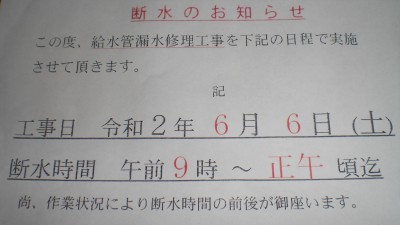 断水のお知らせ
この度、給水管漏水修理工事を下記の日程で実施
させて頂きます。
記
工事日 令和2年 6月 6日 (土)
断水時間 午前9時 ~ 正午 頃迄
尚、作業状況により断水時間の前後が御座います。